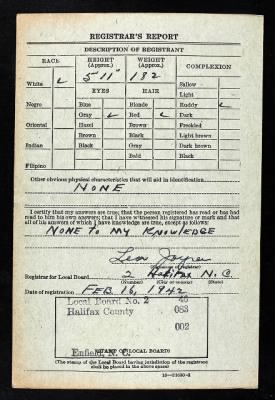 REGISTRAR'S REPORT
DESCRIPTION OF REGISTRANT
RACE HEIGHT (Approx.) WEIGHT (Approx.) COMPLEXION
White ✓ 5' 11" 182 Sallow
EYES HAIR Light
Negro Blue Blonde Ruddy ✓
Gray ✓ Red ✓ Dark
Oriental Hazel Brown Freckled
Brown Black Light brown
Indian Black Gray Dark brown
Bald Black
Filipino
Other obvious physical characteristics that will aid in identification
NONE
I certify that my answers are true; that the person registered has read or has had
read to him his own answers; that I have witnessed his signature or mark and that
all of his answers of which I have knowledge are true, except as follows:
NONE TO MY KNOWLEDGE
Leon Joyner
(Signature of registrar)
Registrar for Local Board 2 Halifax N. C.
(Number) (City or county) (State)
Date of registration FEB. 16, 1942
Local Board No. 2 46
Halifax County 083
002
Enfield, N. C.
(STAMP OF LOCAL BOARD)
(The stamp of the Local Board having jurisdiction of the registrant
shall be placed in the above space)